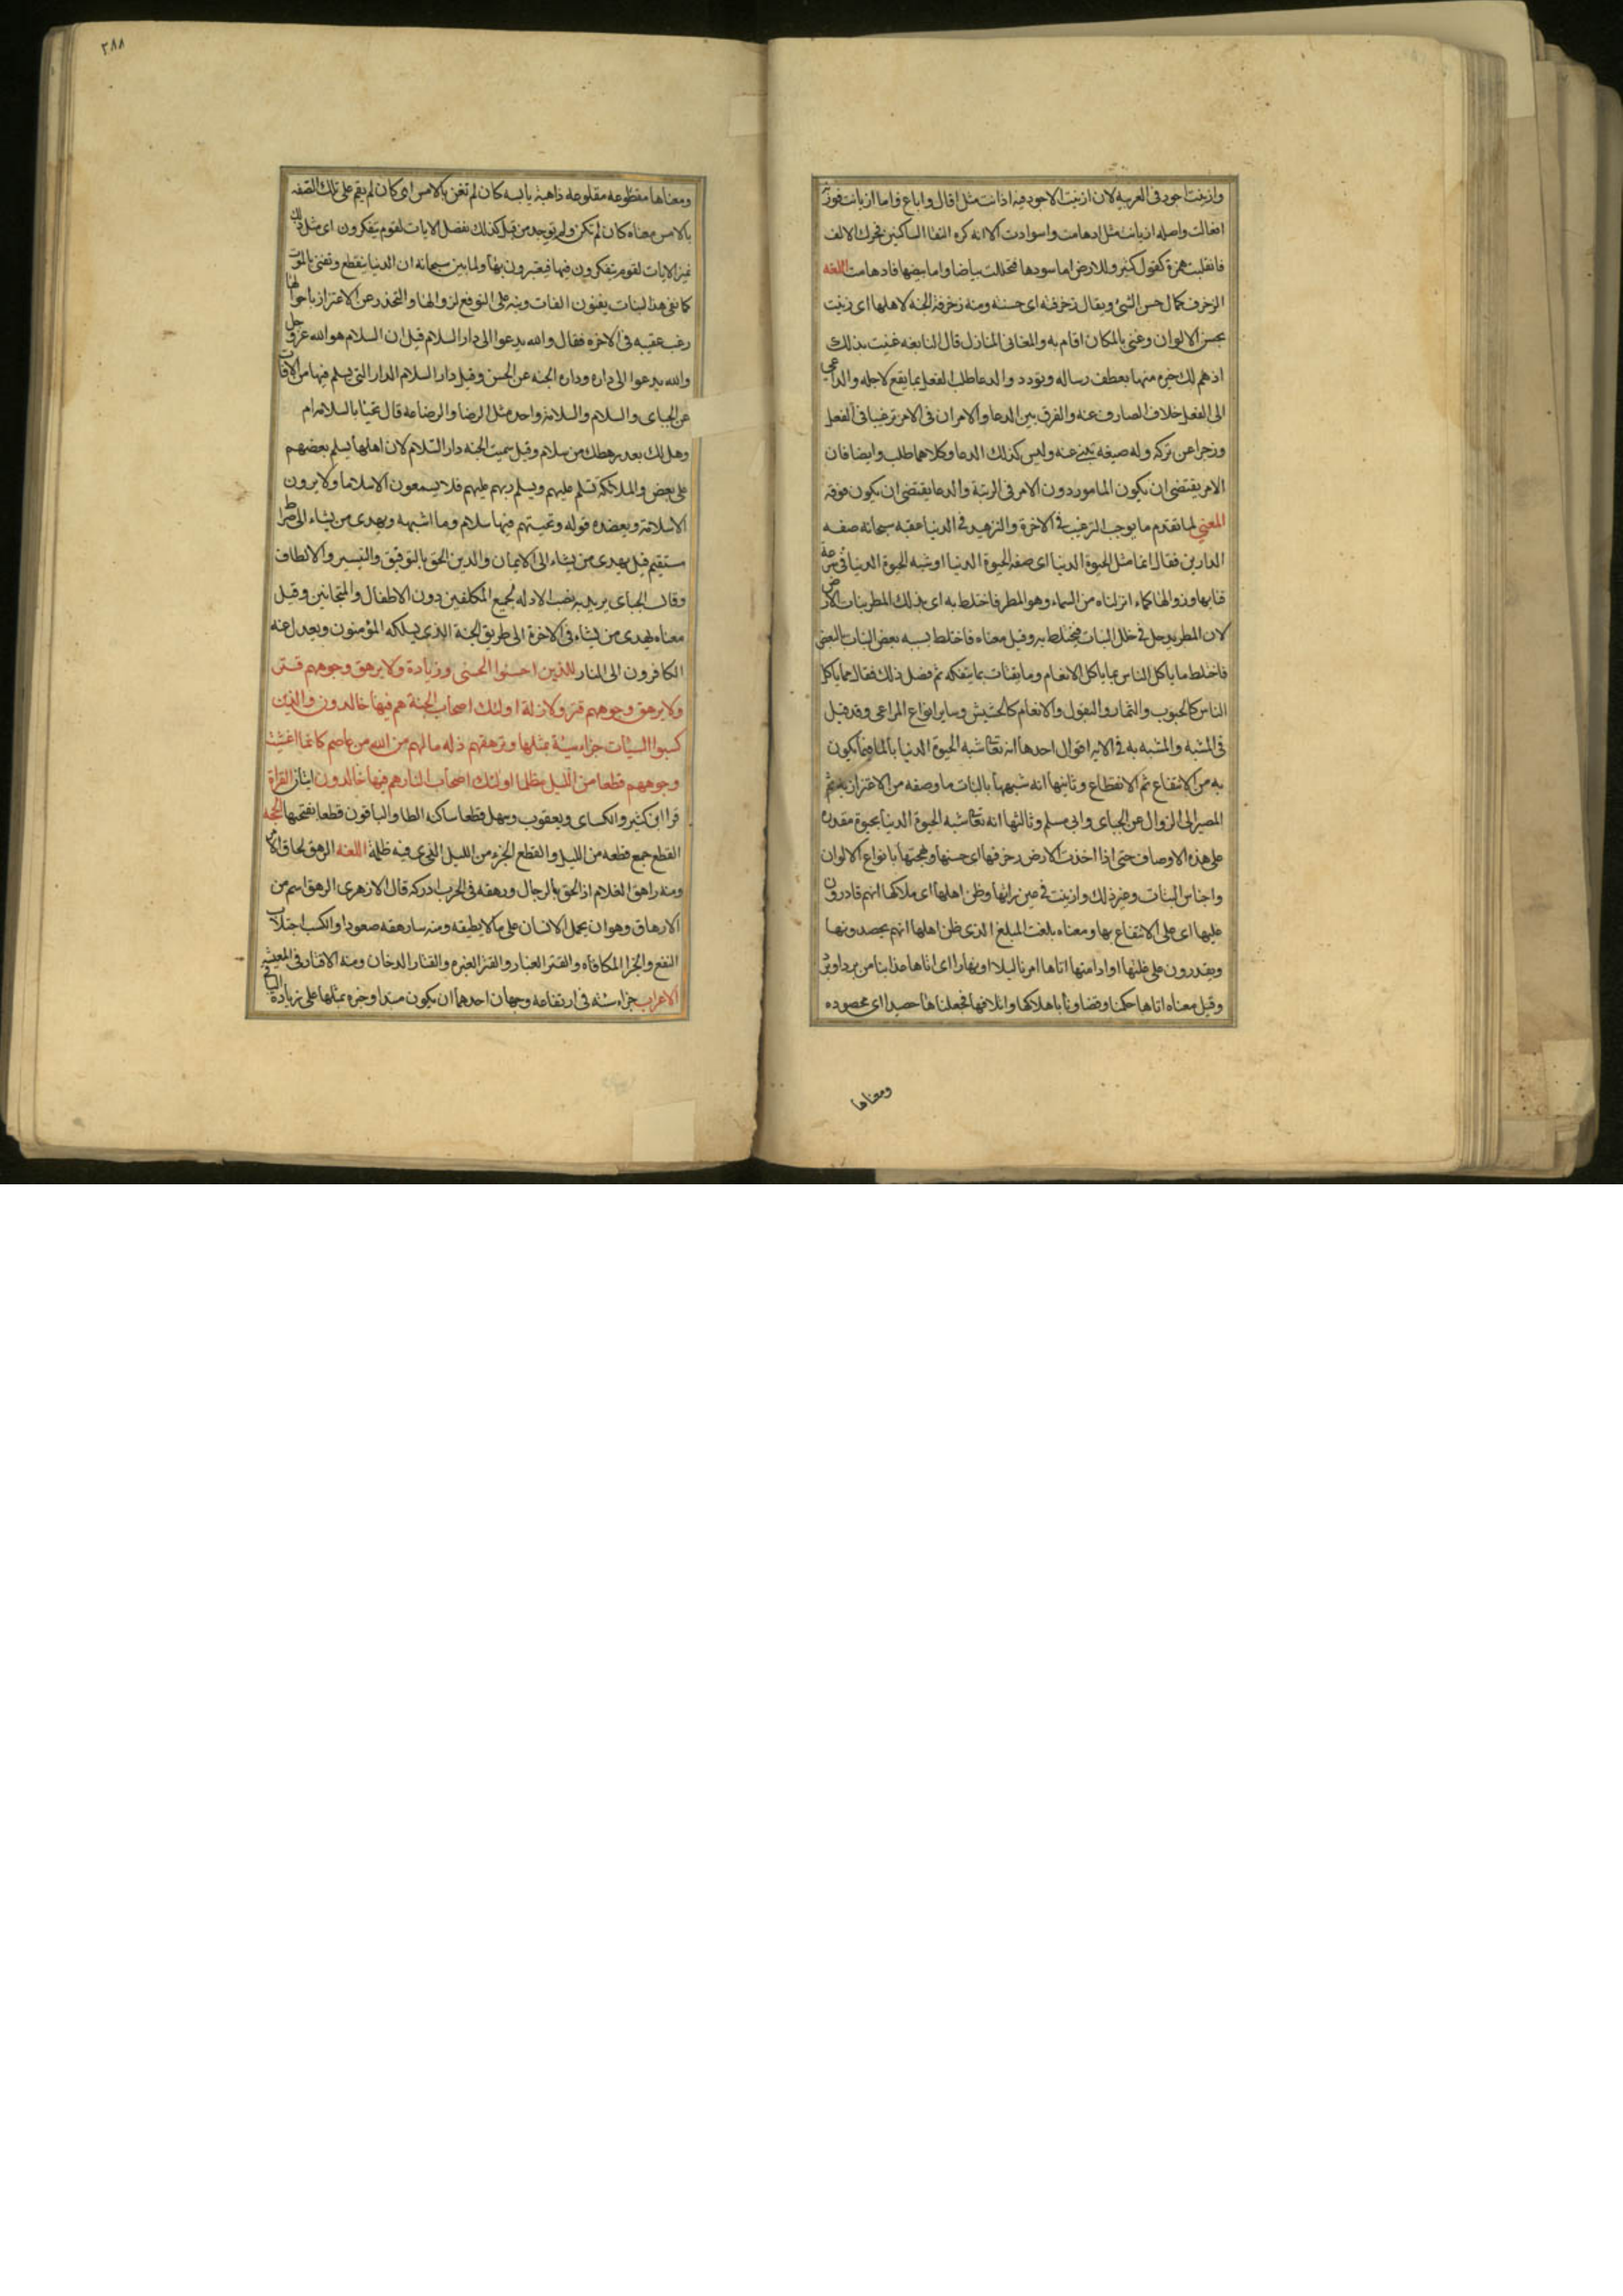 وازينت اجود فى العربية لان ازينت الاجود فيه ازانت مثل اقال واباع واما ازيانت فوزنه
افعالت واصله ازيانت مثل ادهامت واسوادت الا انه كره التقا الساكنين فحرك الالف
فانقلبت همزة كقول كثير وللارض اما سودها فتجللت بياضا واما بيضها فادهامت اللغه
الزخرف كمال حسن الشئ ويقال زخرفته اى حسنته ومنه زخرفة الجنه لاهلها اى زينت
بحسن الالوان وغنى بالمكان اقام به والمغانى المنازل قال النابغه غنيت بذلك
اذ هم لك جيره منها بعطف رساله وتودد والدعا طلب الفعل بما يقع لاجله والداعى
الى الفعل خلاف الصارف عنه والفرق بين الدعا والامر ان فى الامر ترغيبا فى الفعل
وزجرا عن تركه وله صيغه تنبئ عنه وليس كذلك الدعا وكلاهما طلب وايضا فان
الامر يقتضى ان يكون المامور دون الامر فى الرتبة والدعا يقتضى ان يكون فوقه
المعني لما تقدم ما يوجب الترغيب فى الاخرة والتزهيد فى الدنيا عقبه سبحانه صفه
الدارين فقال انما مثل الحيوة الدنيا اى صفه الحيوة الدنيا او شبه الحيوة الدنيا فى سرعة
فنابها وزوالها كماء انزلناه من السماء وهو المطر فاختلط به اى بذلك المطر نبات الارض
لان المطر يدخل فى خلل النبات فيختلط به وقيل معناه فاختلط بسببه بعض النبات بالبعض
فاختلط ما ياكل الناس بما ياكل الانعام وما يقتات بما يتفكه ثم فصل ذلك فقال مما ياكل
الناس كالحبوب والثمار والبقول والانعام كالحشيش وساير انواع المراعى وقد قيل
فى المشبه والمشبه به فى الايه اقوال احدها انه تعالى شبه الحيوة الدنيا بالما فيما يكون
به من الانتفاع ثم الانقطاع وثانيها انه شبهها بالنبات ما وصفه من الاغترار به ثم
المصير الى الزوال عن الجباى وابى مسلم وثالثها انه تعالى شبه الحيوة الدنيا بحيوة مقدره
على هذه الاوصاف حتى اذا اخذت الارض زخرفها اى حسنها وبهجتها بانواع الالوان
واجناس النبات وغير ذلك وازينت فى عين رائيها وظن اهلها اى ملاكها انهم قادرون
عليها اى على الانتفاع بها ومعناه بلغت المبلغ الذى ظن اهلها انهم يحصدونها
ويقدرون على غلتها او ادامتها اتاها امرنا ليلا او نهارا اى اتاها عذابنا من برد او برد
وقيل معناه اتاها حكمنا وقضاونا باهلاكها واتلافها فجعلناها حصيدا اى محصوده
ومعناها
٣٨٨
ومعناها مقطوعه مقلوعه ذاهبة يابسه كان لم تغن بالامس اى كان لم يقم على تلك الصفه
بالامس معناه كان لم تكن ولم توجد من قبل كذلك نفصل الايات لقوم يتفكرون اى مثل ذلك
نميز الايات لقوم يتفكرون فيها فيعتبرون بها ولما بين سبحانه ان الدنيا ينقطع وتفنى بالموت
كما يفنى هذا النبات بفنون الافات ونبه على التوقع لزوالها والتحذر عن الاغترار باحوالها
رغب عقيبه فى الاخره فقال والله يدعوا الى دار السلام قيل ان السلام هو الله عز وجل
والله يدعوا الى داره وداره الجنه عن الحسن وقيل دار السلام الدار التى يسلم فيها من الافات
عن الجباى والسلام والسلامة واحد مثل الرضاع والرضاعه قال تحيا بالسلامة ام
وهل لك بعد رهطك من سلام وقيل سميت الجنه دار السلام لان اهلها يسلم بعضهم
على بعض والملائكة تسلم عليهم ويسلم ربهم عليهم فلا يسمعون الا سلاما ولا يرون
الا سلامة ويعضده قوله وتحيتهم فيها سلام وما اشبهه ويهدى من يشاء الى صراط
مستقيم قيل يهدى من يشاء الى الايمان والدين الحق بالتوفيق والتيسير والالطاف
وقال الجباى يريد به نصب الادله لجميع المكلفين دون الاطفال والمجانين وقيل
معناه يهدى من يشاء فى الاخرة الى طريق الجنة الذى يسلكه المؤمنون ويعدل عنه
الكافرون الى النار للذين احسنوا الحسنى وزيادة ولا يرهق وجوههم قتر
ولا يرهق وجوههم قتر ولا ذلة اولئك اصحاب الجنة هم فيها خالدون والذين
كسبوا السيئات جزاء سيئة بمثلها وترهقهم ذله ما لهم من الله من عاصم كانما اغشيت
وجوههم قطعا من الليل مظلما اولئك اصحاب النار هم فيها خالدون ايتان القراة
قرا ابن كثير والكساى ويعقوب وسهل قطعا ساكنه الطا والباقون قطعا بفتحها الحجه
القطع جمع قطعه من الليل والقطع الجزء من الليل الذى فيه ظلمة اللغه الرهق لحاق الامر
ومنه راهق الغلام اذا لحق بالرجال ورهقه فى الحرب ادركه قال الازهرى الرهق اسم من
الارهاق وهو ان يحمل الانسان على ما لا يطيقه ومنه سارهقه صعودا والكسب اجتلاب
النفع والجزا المكافاه والقتر الغبار والقتر الغبره والقتار الدخان ومنه الاقتار فى المعيشه
الاعراب جزاء سيئه فى ارتفاعه وجهان احدهما ان يكون مبتدا وخبره بمثلها على زيادة الباء